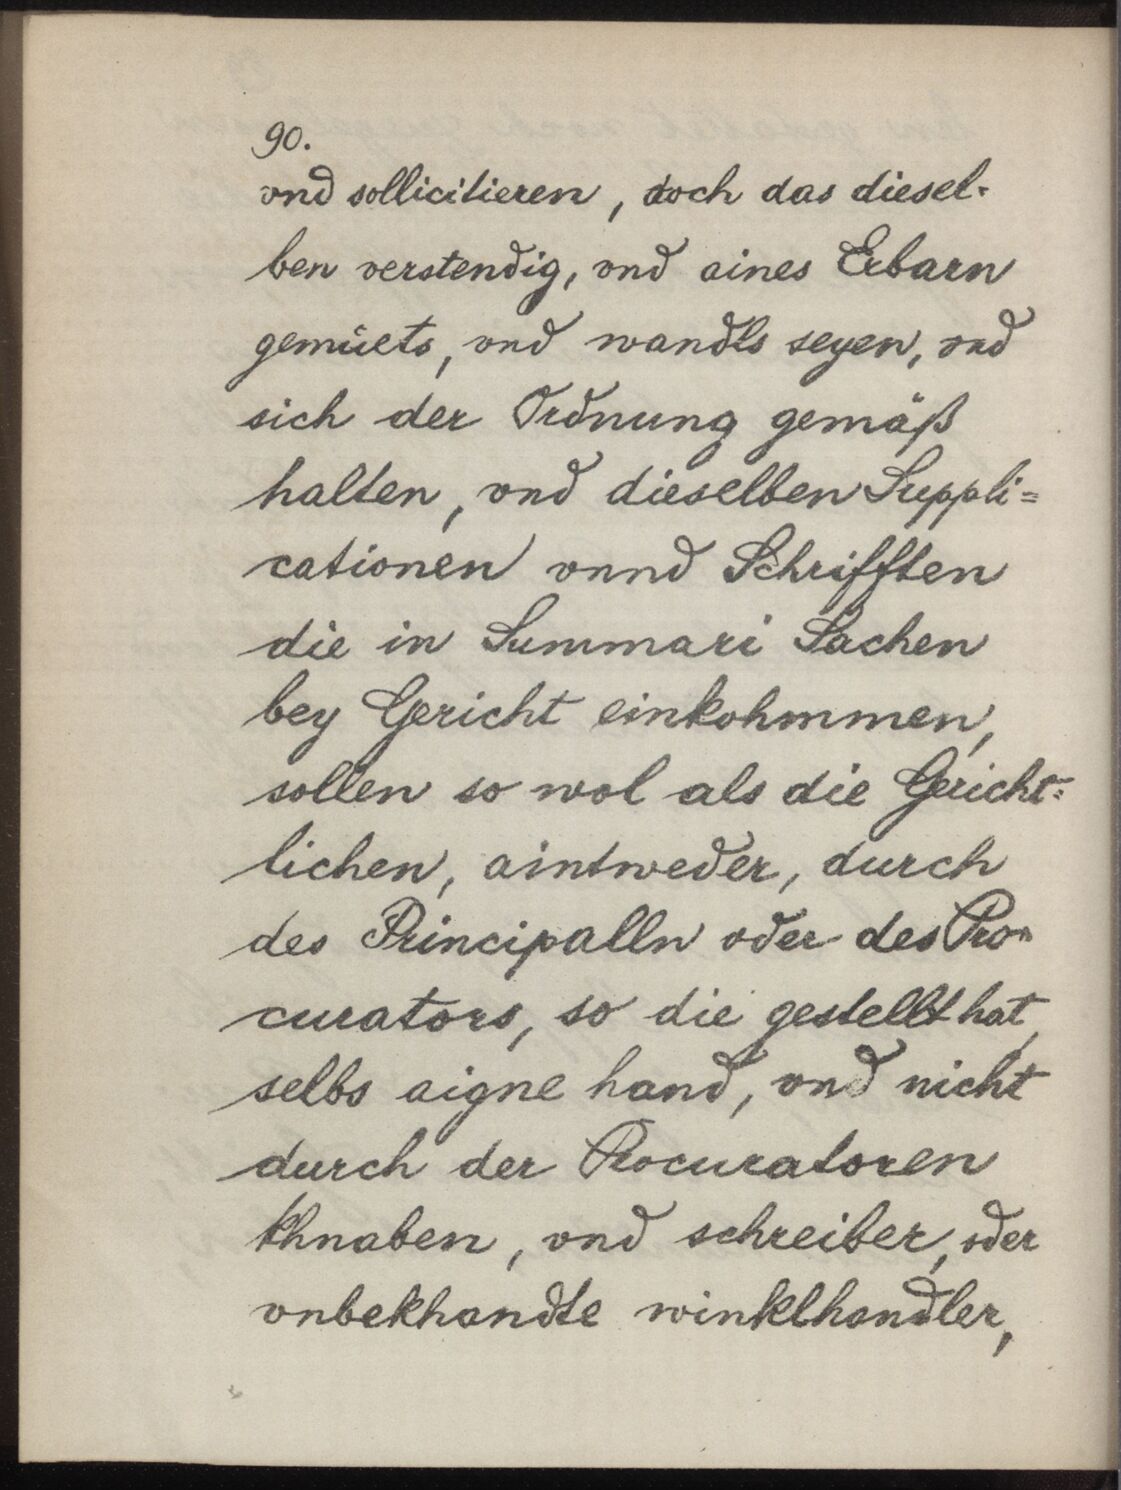 90.
vnd sollicitieren, doch das diesel-
ben verstendig, vnd aines Erbarn
gemüets, vnd wandls seyen, vnd
sich der Ordnung gemäß
halten, vnd dieselben Suppli=
cationen vnnd Schrifften
die in Summari Sachen
bey Gericht einkohmmen,
sollen so wol als die Gericht=
lichen, aintweder, durch
des Principalln oder des Pro=
curators, so die gestellt hat,
selbs aigne hand, vnd nicht
durch der Procuratoren
Khnaben, vnd schreiber, oder
vnbekhandte winklhandler,